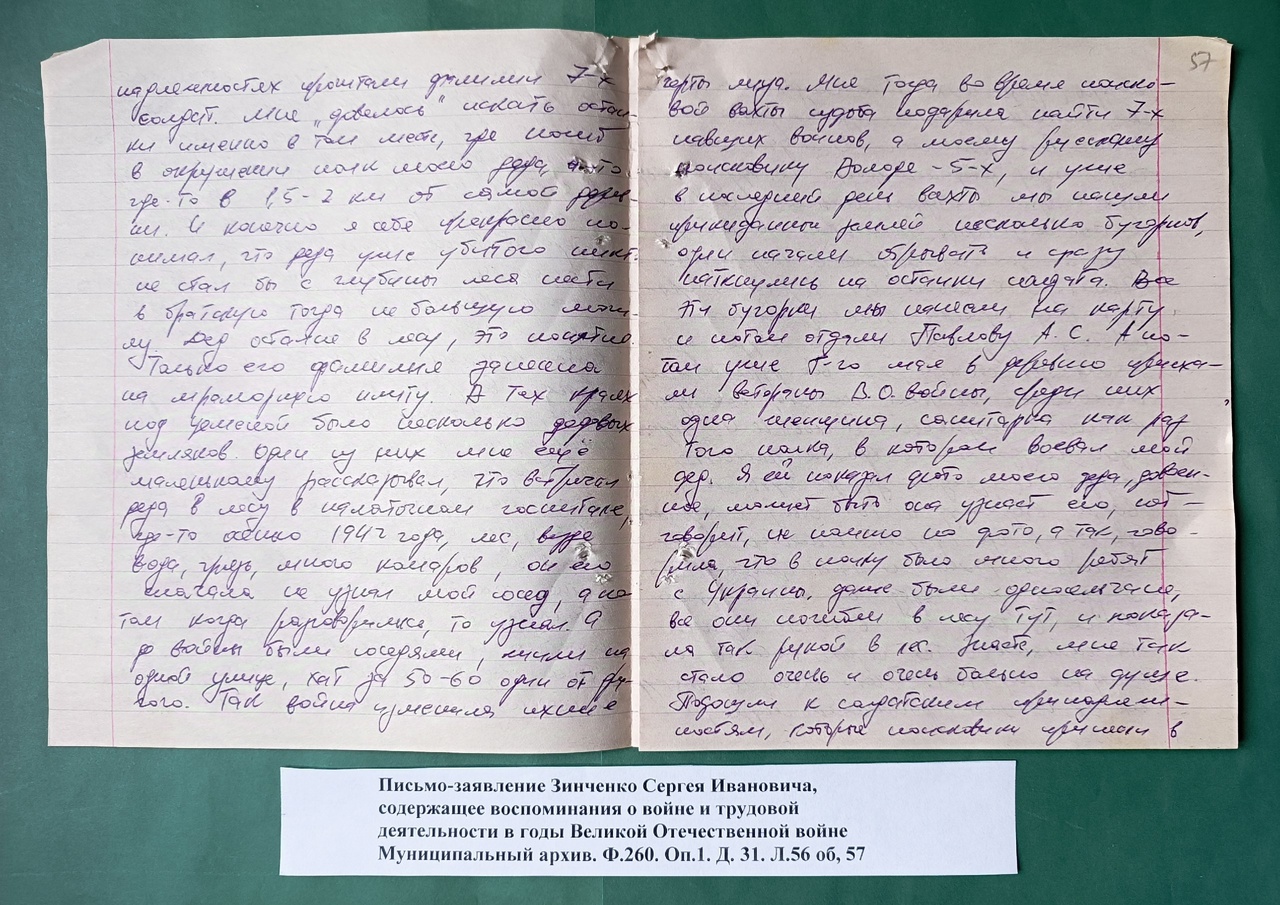 надлежностях прочитали фамилии 7-х
солдат. Мне "довелось" искать остан-
ки именно в том месте, где погиб
в окружении полк моего деда, это
где-то в 1,5-2 км от самой дерев-
ни. И конечно я себе прекрасно по-
нимал, что деда уже убитого никто
не стал бы с глубины леса нести
в братскую тогда не большую моги-
лу. Дед остался в лесу, это понятно.
Только его фамилия занесена
на мраморную плиту. А тех краях
под было несколько дедовых
земляков. Один из них мне ещё
маленькому рассказывал, что встречал
деда в лесу в палаточном госпитале,
где-то 1942 года, лес, везде
вода, грязь, много комаров, он его
сначала не узнал мой сосед, а по-
том когда разговорились, то узнал. А
до войны были соседями, жили на
одной улице, хат за 50-60 один от дру-
гого. Так война изменила ихние
57
черты лица. Мне тогда во время поиско-
вой вахты судьба подарила найти 7-х
павших воинов, а моему русскому
поисковику Володе - 5-х, и уже
в последний день вахты мы нашли
прикиданный землей несколько бугорков,
один начали обрывать и сразу
наткнулись на останки солдата. Все
эти бугорки мы нанесли на карту
и потом отдали Павлову А.С. А по-
том уже 8-го мая в деревню приеха-
ли ветераны В.О. войны, среди них
одна женщина, санитарка как раз
того полка, в котором воевал мой
дед. Я ей показал фото моего деда, довоен-
ное, может быть она узнает его,
говорит, не помню по фото, а так, гово-
рила, что в полку было много ребят
с Украины, даже были односельчане,
все они погибли в лесу тут, и показа-
ла так рукой в лес. Знаете, мне так
стало очень и очень больно на душе.
Подошли к солдатским принадлеж-
ностям, которые поисковики принесли в
Письмо-заявление Зинченко Сергея Ивановича,
содержащее воспоминания о войне и трудовой
деятельности в годы Великой Отечественной войне
Муниципальный архив. Ф.260. Оп.1. Д. 31. Л.56 об, 57